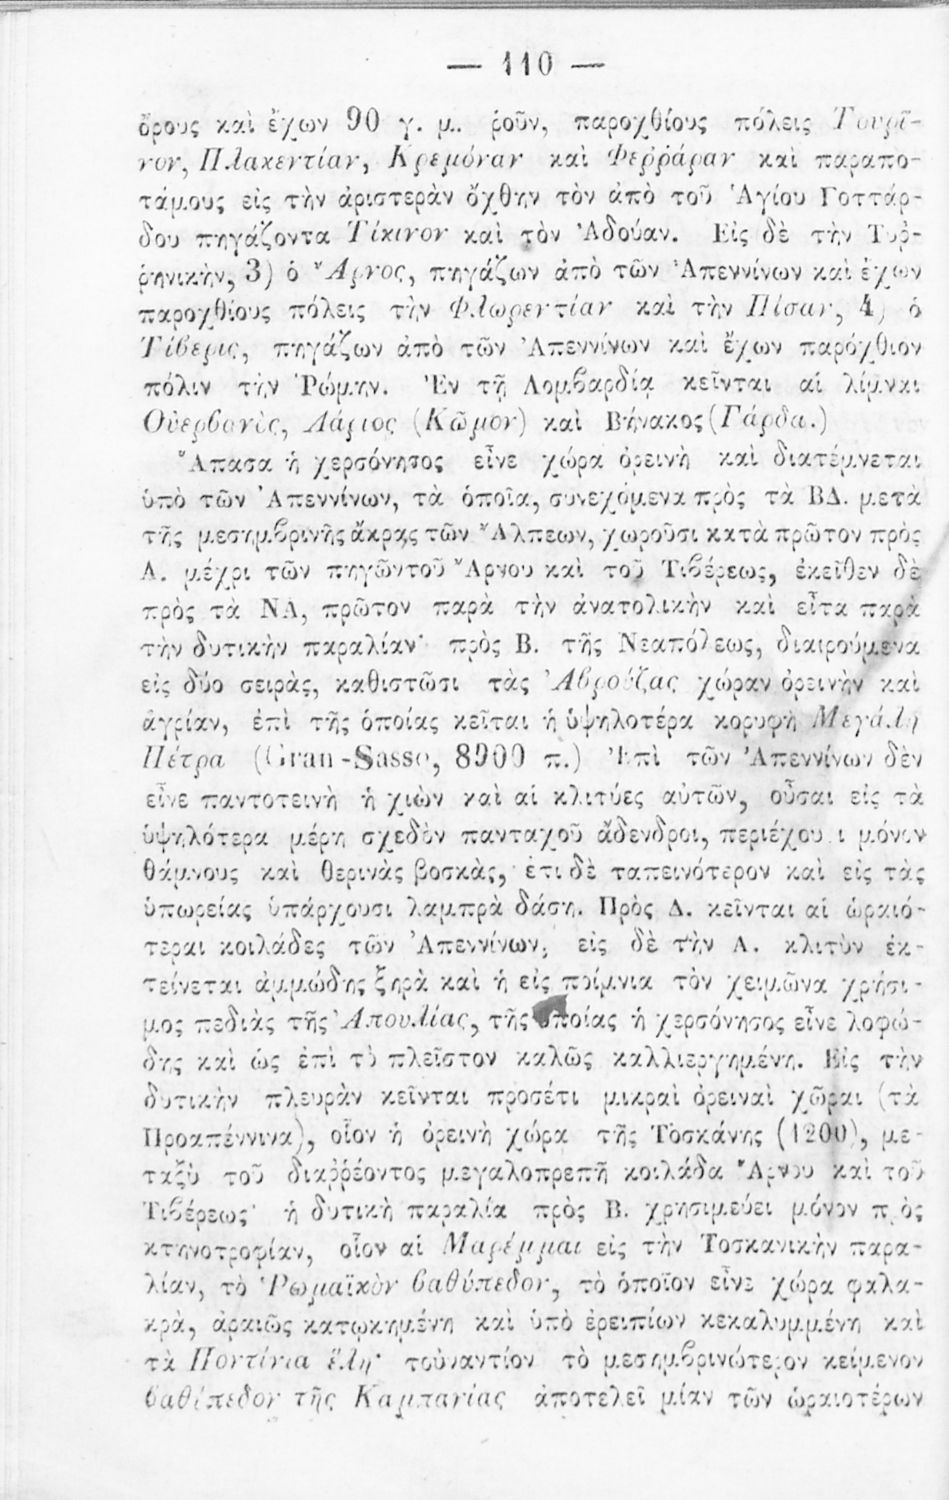 — 110 —
ὄρους καὶ ἔχων 90 γ. μ. ῥοῦν, παροχθίους πόλεις Τουρῖ-
νον, Πλακεντίαν, Κρεμόναν καὶ Φεῤῥάραν καὶ παραπο-
τάμους εἰς τὴν ἀριστερὰν ὄχθην τὸν ἀπὸ τοῦ Ἁγίου Γοττάρ-
δου πηγάζοντα Τίκινον καὶ τὸν Ἀδούαν. Εἰς δὲ τὴν Τυρ-
ρηνικὴν, 3) ὁ Ἄρνος, πηγάζων ἀπὸ τῶν Ἀπεννίνων καὶ ἔχων
παροχθίους πόλεις τὴν Φλωρεντίαν καὶ τὴν Πίσαν, 4) ὁ
Τίβερις, πηγάζων ἀπὸ τῶν Ἀπεννίνων καὶ ἔχων παρόχθιον
πόλιν τὴν Ῥώμην. Ἐν τῇ Λομβαρδίᾳ κεῖνται αἱ λίμναι
Οὐερβανὶς, Λάριος (Κῶμον) καὶ Βήνακος (Γάρδα.)
Ἅπασα ἡ χερσόνησος εἶνε χώρα ὀρεινὴ καὶ διατέμνεται
ὑπὸ τῶν Ἀπεννίνων, τὰ ὁποῖα, συνεχόμενα πρὸς τὰ ΒΔ. μετὰ
τῆς μεσημβρινῆς ἄκρας τῶν Ἄλπεων, χωροῦσι κατὰ πρῶτον πρὸς
Α. μέχρι τῶν πηγῶν τοῦ Ἄρνου καὶ τοῦ Τιβέρεως, ἐκεῖθεν δὲ
πρὸς τὰ ΝΑ, πρῶτον παρὰ τὴν ἀνατολικὴν καὶ εἶτα παρὰ
τὴν δυτικὴν παραλίαν· πρὸς Β. τῆς Νεαπόλεως, διαιρούμενα
εἰς δύο σειρὰς, καθιστῶσι τὰς Ἀβρούζας χώραν ὀρεινὴν καὶ
ἀγρίαν, ἐπὶ τῆς ὁποίας κεῖται ἡ ὑψηλοτέρα κορυφὴ Μεγάλη
Πέτρα (Gran-Sasso, 8900 π.) Ἐπὶ τῶν Ἀπεννίνων δὲν
εἶνε παντοτεινὴ ἡ χιὼν καὶ αἱ κλιτύες αὐτῶν, οὖσαι εἰς τὰ
ὑψηλότερα μέρη σχεδὸν πανταχοῦ ἄδενδροι, περιέχουσι μόνον
θάμνους καὶ θερινὰς βοσκὰς, ἔτι δὲ ταπεινότερον καὶ εἰς τὰς
ὑπωρείας ὑπάρχουσι λαμπρὰ δάση. Πρὸς Δ. κεῖνται αἱ ὡραιό-
τεραι κοιλάδες τῶν Ἀπεννίνων, εἰς δὲ τὴν Α. κλιτὺν ἐκ-
τείνεται ἀμμώδης ξηρὰ καὶ ἡ εἰς ποίμνια τὸν χειμῶνα χρήσι-
μος πεδιὰς τῆς Ἀπουλίας, τῆς ὁποίας ἡ χερσόνησος εἶνε λοφώ-
δης καὶ ὡς ἐπὶ τὸ πλεῖστον καλῶς καλλιεργημένη. Εἰς τὴν
δυτικὴν πλευρὰν κεῖνται προσέτι μικραὶ ὀρειναὶ χῶραι (τὰ
Προαπέννινα), οἷον ἡ ὀρεινὴ χώρα τῆς Τοσκάνης (1200), με-
ταξὺ τοῦ διαῤῥέοντος μεγαλοπρεπῆ κοιλάδα Ἄρνου καὶ τοῦ
Τιβέρεως· ἡ δυτικὴ παραλία πρὸς Β. χρησιμεύει μόνον πρὸς
κτηνοτροφίαν, οἷον αἱ Μαρέμμαι εἰς τὴν Τοσκανικὴν παρα-
λίαν, τὸ Ῥωμαϊκὸν βαθύπεδον, τὸ ὁποῖον εἶνε χώρα φαλα-
κρὰ, ἀραιῶς κατῳκημένη καὶ ὑπὸ ἐρειπίων κεκαλυμμένη καὶ
τὰ Ποντίνια ἕλη· τοὐναντίον τὸ μεσημβρινώτερον κείμενον
βαθύπεδον τῆς Καμπανίας ἀποτελεῖ μίαν τῶν ὡραιοτέρων